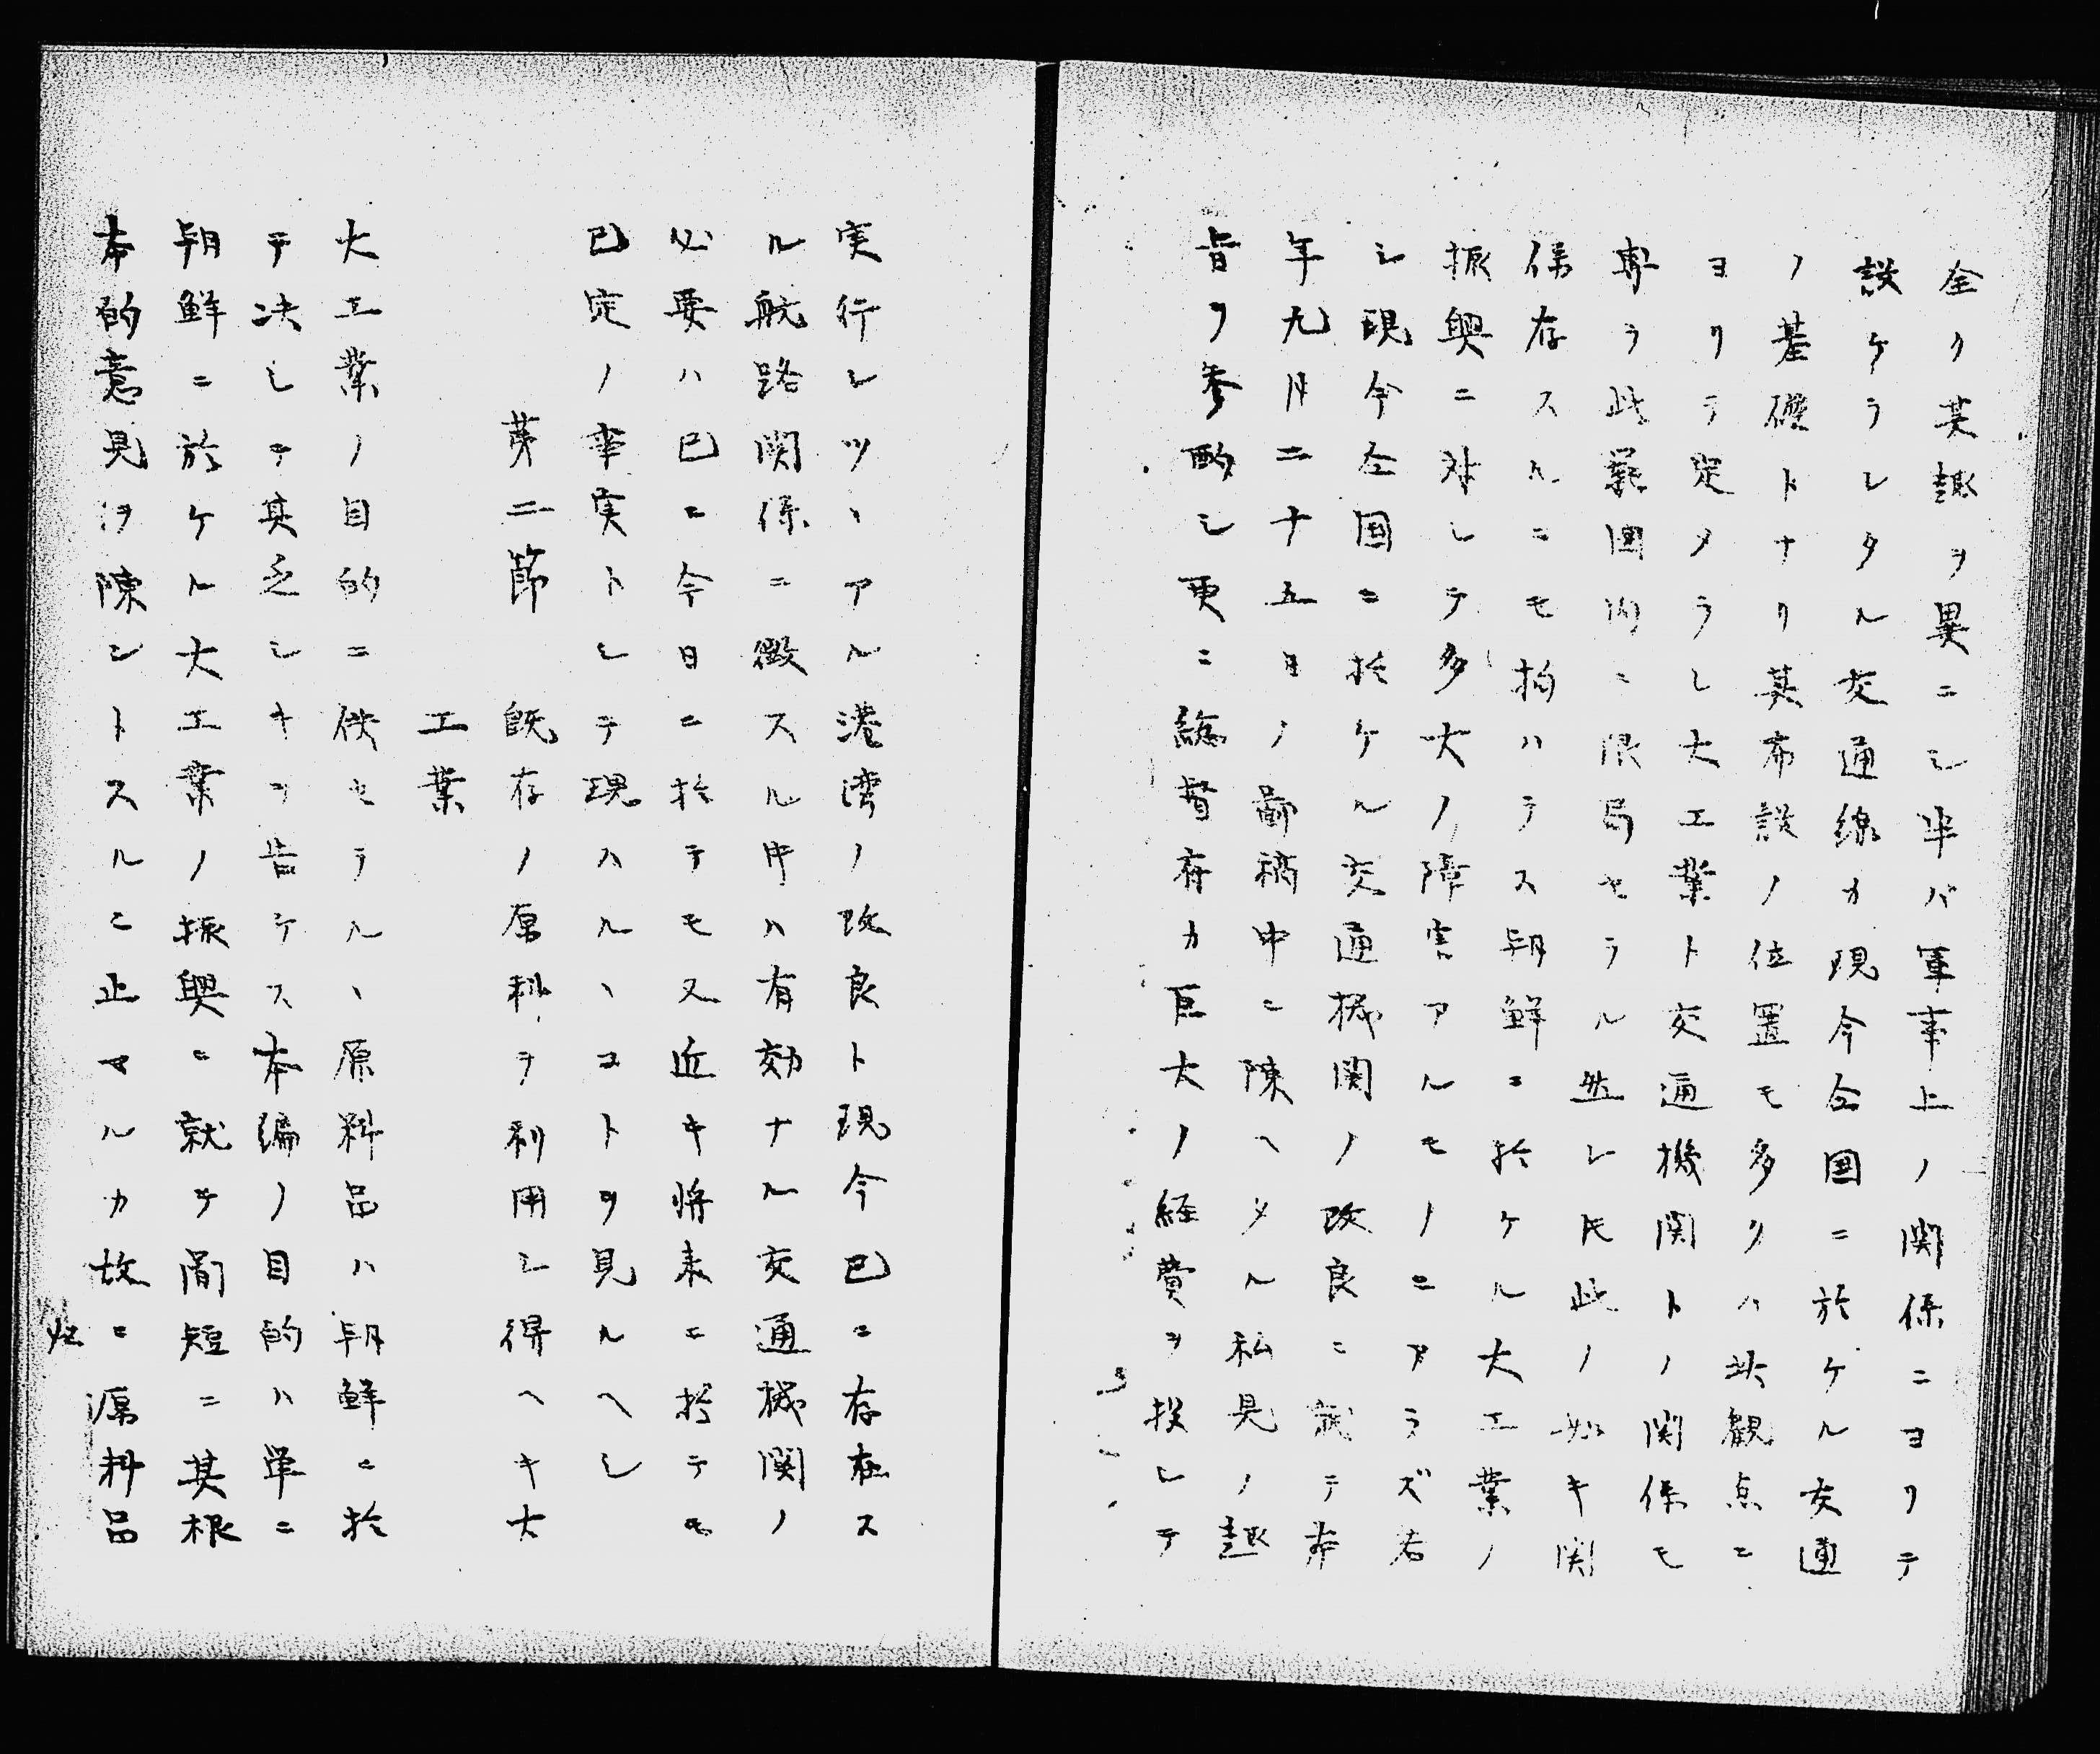 全ク其趣ヲ異ニシ半バ軍事上ノ関係ニヨリテ
設ケラレタル交通線カ現今全国ニ於ケル交通
ノ基礎トナリ其布設ノ位置モ多クハ此観点ニ
ヨリテ定メラレ大工業ト交通機関トノ関係モ
専ラ此範囲内ニ限局セラル然レ氏此ノ如キ関
係存スルニモ拘ハラス朝鮮ニ於ケル大工業ノ
振興ニ対シテ多大ノ障害アルモノニアラズ若
シ現今全国ニ於ケル交通機関ノ改良ニ就テ本
年九月二十五日ノ鄙稿中ニ陳ヘタル私見ノ趣
旨ヲ参酌シ更ニ総督府カ巨大ノ経費ヲ投シテ
実行シツヽアル港湾ノ改良ト現今已ニ存在ス
ル航路関係ニ徴スル時ハ有効ナル交通機関ノ
必要ハ已ニ今日ニ於テモ又近キ将来ニ於テモ
已定ノ事実トシテ現ハルヽコトヲ見ルヘシ
第二節 既存ノ原料ヲ利用シ得ヘキ大
工業
大工業ノ目的ニ供セラルヽ原料品ハ朝鮮ニ於
テ決シテ其乏シキヲ告ケス本編ノ目的ハ単ニ
朝鮮ニ於ケル大工業ノ振興ニ就キ簡短ニ其根
本的意見ヲ陳シトスルニ止マルカ故ニ源料品